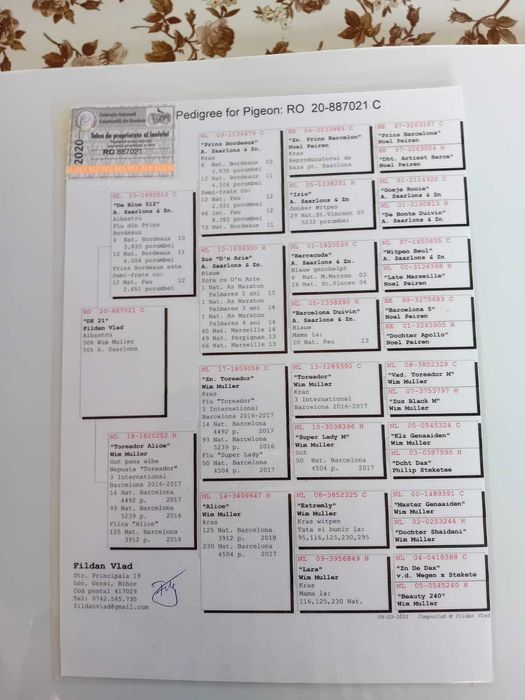 Federația Națională
Columbofilă din România
2020
Talon de proprietate al inelului
RO 887021
Pedigree for Pigeon: RO 20-887021 C
NL 15-1865512 C
"De Blue 512"
A. Saarlons & Zn.
Albastru
Fiu din Prins
Bordeaux
6 Nat. Bordeaux 10
3.835 porumbei
12 Nat. Bordeaux 11
4.504 porumbei
Prins Bordeaux este
Semi-frate cu:
12 Nat. Pau 12
2.651 porumbei
RO 20-887021 C
"DE 21"
Fildan Vlad
Albastru
50% Wim Muller
50% A. Saarlons
NL 18-1820252 H
"Toreador Alice"
Wim Muller
Gut pana alba
Nepoata "Toreador"
3 International
Barcelona 2016-2017
14 Nat. Barcelona
4492 p. 2017
93 Nat. Barcelona
5239 p. 2016
Fiica "Alice"
125 Nat. Barcelona
3912 p. 2018
NL 09-1136479 C
"Prins Bordeaux"
A. Saarlons & Zn.
Kras
6 Nat. Bordeaux 10
3.835 porumbei
12 Nat. Bordeaux 11
4.504 porumbei
Semi-frate cu:
12 Nat. Pau 12
2.651 porumbei
46 Int. Pau 12
8.382 porumbei
73 Nat. Bordeaux 11
NL 10-1836300 H
Zus "D'n Arie"
A. Saarlons & Zn.
Blauw
Sora cu D'n Arie
1 Nat. As Maraton
Palmares 2 ani 13
1 Nat. As Maraton
Palmares 3 ani 14
1 Nat. As Maraton
Palmares 4 ani 14
45 Nat. Marseille 18
49 Nat. Perpignan 13
66 Nat. Marseille 13
NL 17-1859058 C
"Zn. Toreador"
Wim Muller
Kras
Fiu "Toreador"
3 International
Barcelona 2016-2017
14 Nat. Barcelona
4492 p. 2017
93 Nat. Barcelona
5239 p. 2016
Fiu "Super Lady"
50 Nat. Barcelona
4504 p. 2017
NL 14-3409647 H
"Alice"
Wim Muller
kras
125 Nat. Barcelona
3912 p. 2018
230 Nat. Barcelona
4504 p. 2017
BE 04-3233888 C
"Zn. Prins Barcelon"
Noel Peiren
Kras
Reproducatorul de
baza pt. Saarlons
NL 05-1338251 H
"Iris"
A. Saarlons & Zn.
Donker Witpen
29 Nat.St.Vincent 07
5232 porumbei
NL 01-1820569 C
"Barracuda"
A. Saarlons & Zn.
Blauw geschelpt
6 Nat. M.Marsan 03
16 Nat. St.Vincen 04
NL 05-1338280 H
"Barcelona Duivin"
A. Saarlons & Zn.
Blauw
Mama la:
10 Nat. Pau 13
NL 13-1289390 C
"Toreador"
Wim Muller
Kras
3 International
Barcelona 2016-2017
NL 10-3038396 H
"Super Lady M"
Wim Muller
Gut
50 Nat. Barcelona
4504 p. 2017
NL 08-3852325 C
"Extremly"
Wim Muller
Kras witpen
Tata si bunic la:
95,116,125,230,295
NL 09-3956849 H
"Lara"
Wim Muller
Kras
Mama la:
116,125,230 Nat.
BE 97-3263157 C
"Prins Barcelona"
Noel Peiren
BE 97-3263054 H
"Dht. Artiest Barce"
Noel Peiren
NL 91-2114322 C
"Goeje Rooie"
A. Saarlons & Zn
NL 01-2190813 H
"De Bonte Duivin"
A. Saarlons & Zn.
NL 97-1450835 C
"Witpen Beul"
A. Saarlons & Zn.
NL 00-3128398 H
"Late Marseille"
Noel Peiren
BE 99-3275683 C
"Barcelona 5"
Noel Peiren
BE 01-3263905 H
"Dochter Apollo"
Noel Peiren
NL 08-3852329 C
"Vad. Toreador M"
Wim Muller
NL 07-3753797 H
"Zus Black M"
Wim Muller
NL 05-0545324 C
"Klz Genaaiden"
Wim Muller
NL 03-0387595 H
"Docht Dax"
Philip Steketee
NL 00-1489391 C
"Master Genaaiden"
Wim Muller
NL 02-0253244 H
"Dochter Shaidani"
Wim Muller
NL 04-0418388 C
"Zn De Dax"
v.d. Wegen x Stekete
NL 05-0545240 H
"Beauty 240"
Wim Muller
Fildan Vlad
Str. Principala 19
Loc. Grosi, Bihor
Cod postal 417029
Tel: 0742.545.735
fildanvlad@gmail.com
08-03-2021 Compuclub © Fildan Vlad